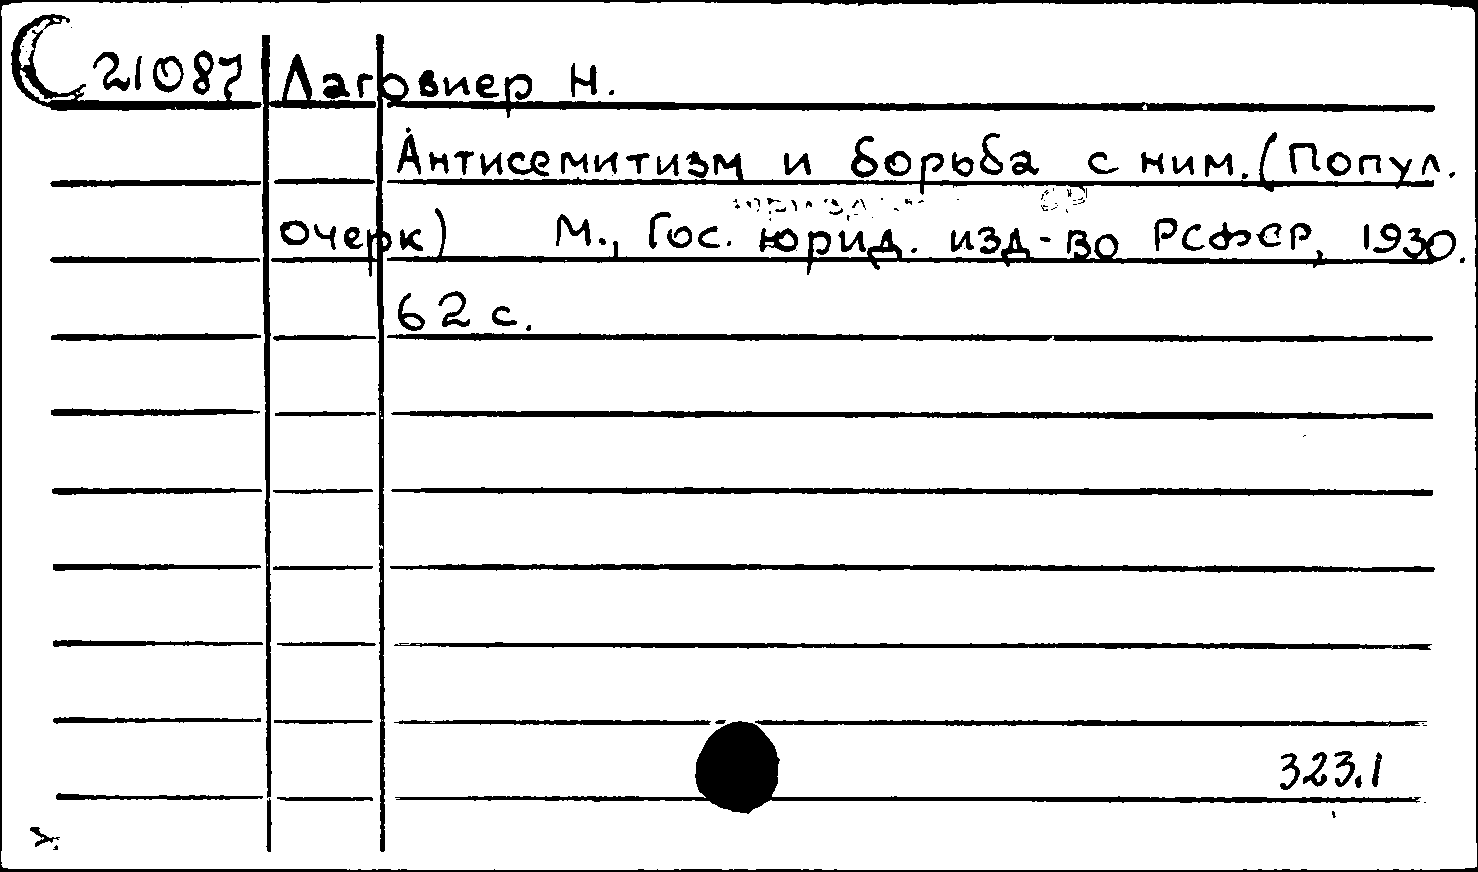 С 21087 Лаговиер Н.
Антисемитизм и борьба с ним. (Попул.
очерк) М., Гос. юрид. изд-во РСФСР, 1930.
62 с.
323.1